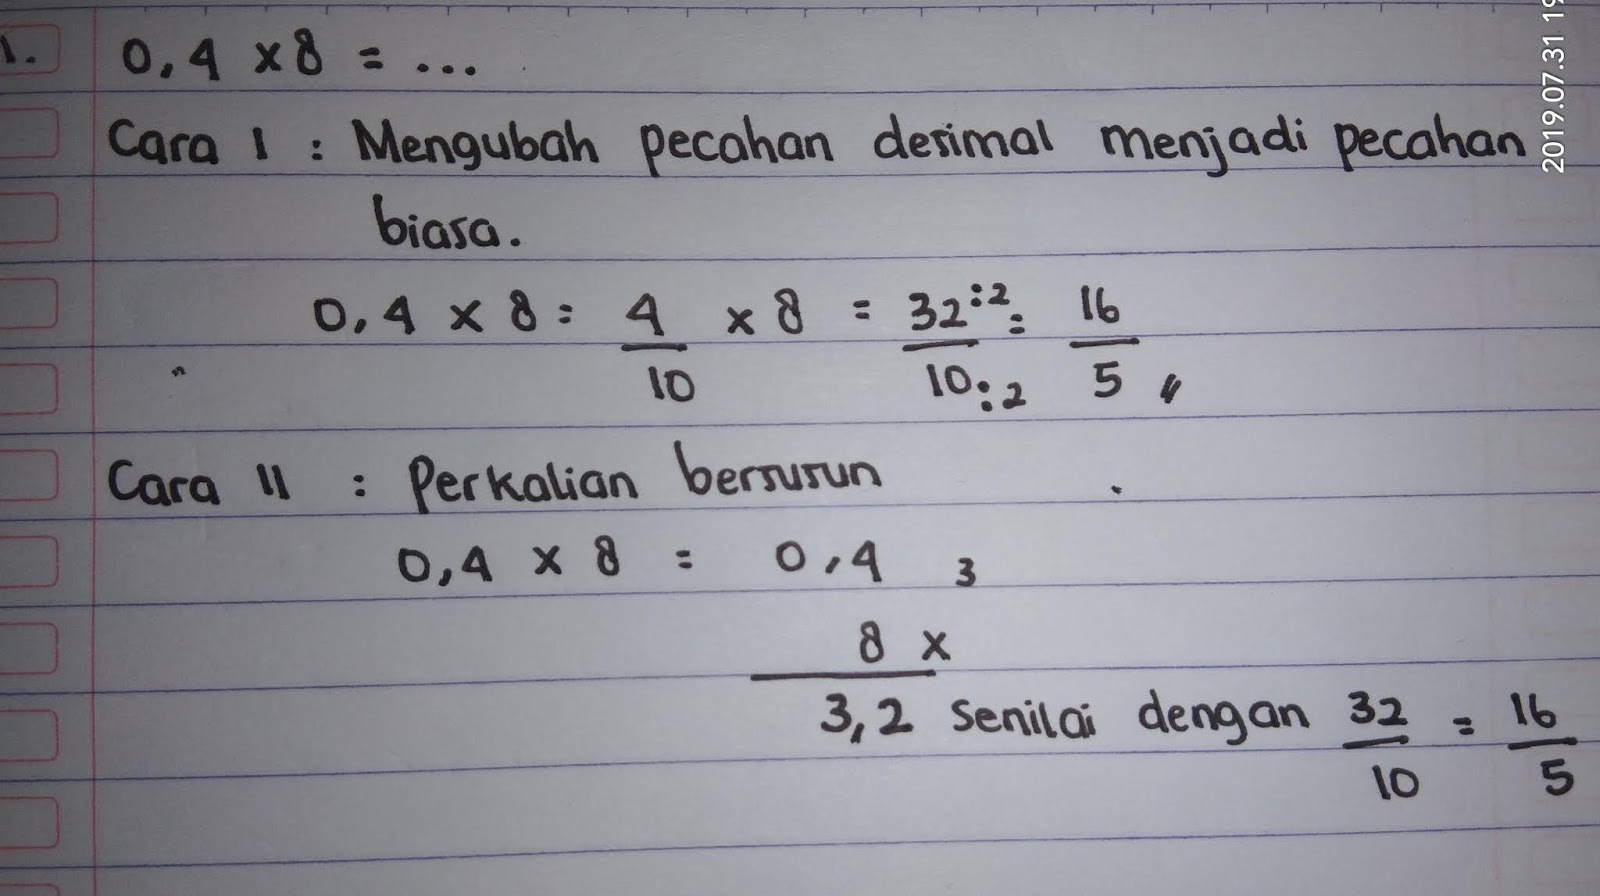 1. 0,4 x 8 = ...
Cara I : Mengubah pecahan desimal menjadi pecahan
biasa.
0,4 x 8 = 4/10 x 8 = 32:2/10:2 = 16/5 //
Cara II : Perkalian bersusun
0,4 x 8 = 0,4 3
8 x
3,2 senilai dengan 32/10 = 16/5
2019.07.31 19